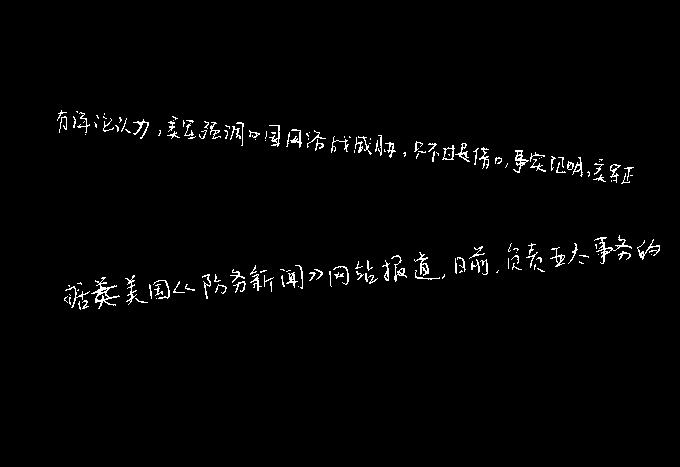 有评论认为,美军强调中国网络战威胁,只不过是借口,事实证明,美军正
据美国《防务新闻》网站报道,日前,负责亚太事务的